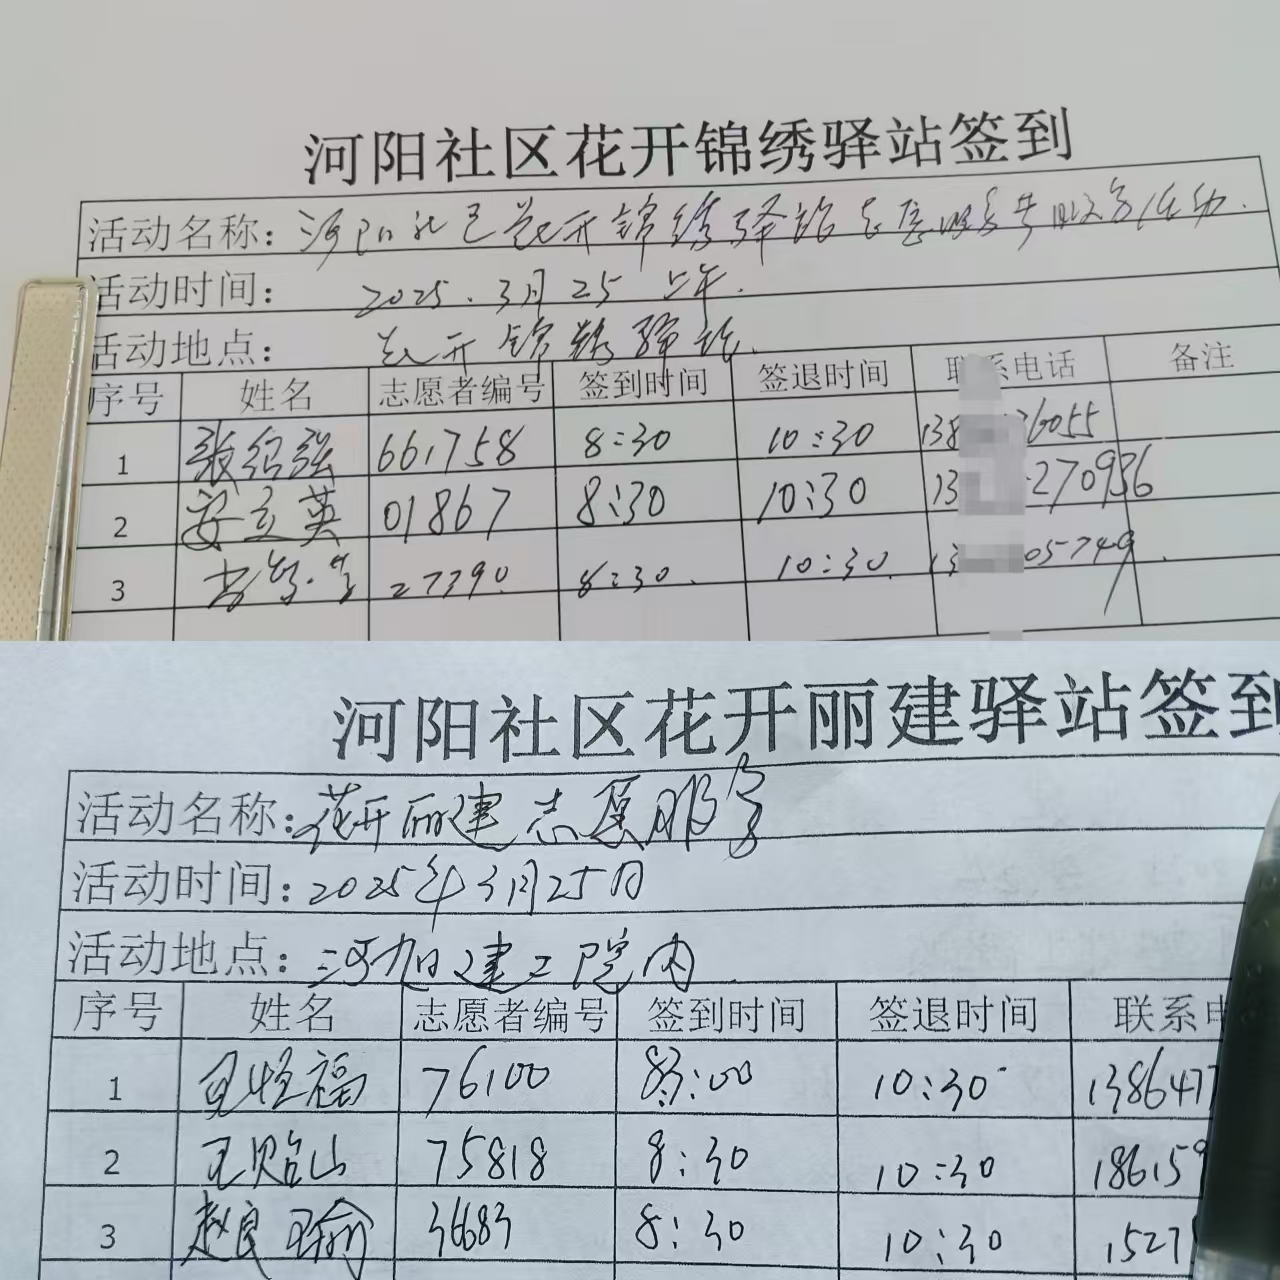 河阳社区花开锦绣驿站签到
活动名称：河阳社区花开锦绣驿站志愿服务活动
活动时间： 2025.3月25 上午.
活动地点： 花开锦绣驿站.
序号 姓名 志愿者编号 签到时间 签退时间 联系电话 备注
1 张绍强 661758 8:30 10:30 138 26055
2 安立英 01867 8:30 10:30 13 270936
3 27390 8:30. 10:30. 13 05749
河阳社区花开丽建驿站签到
活动名称：花开丽建志愿服务
活动时间：2025年3月25日
活动地点：河旭建工院内
序号 姓名 志愿者编号 签到时间 签退时间 联系电
1 福 76100 8:00 10:30 1386477
2 王贻山 75818 8:30 10:30 186159
3 赵良瑜 36683 8:30 10:30 1527